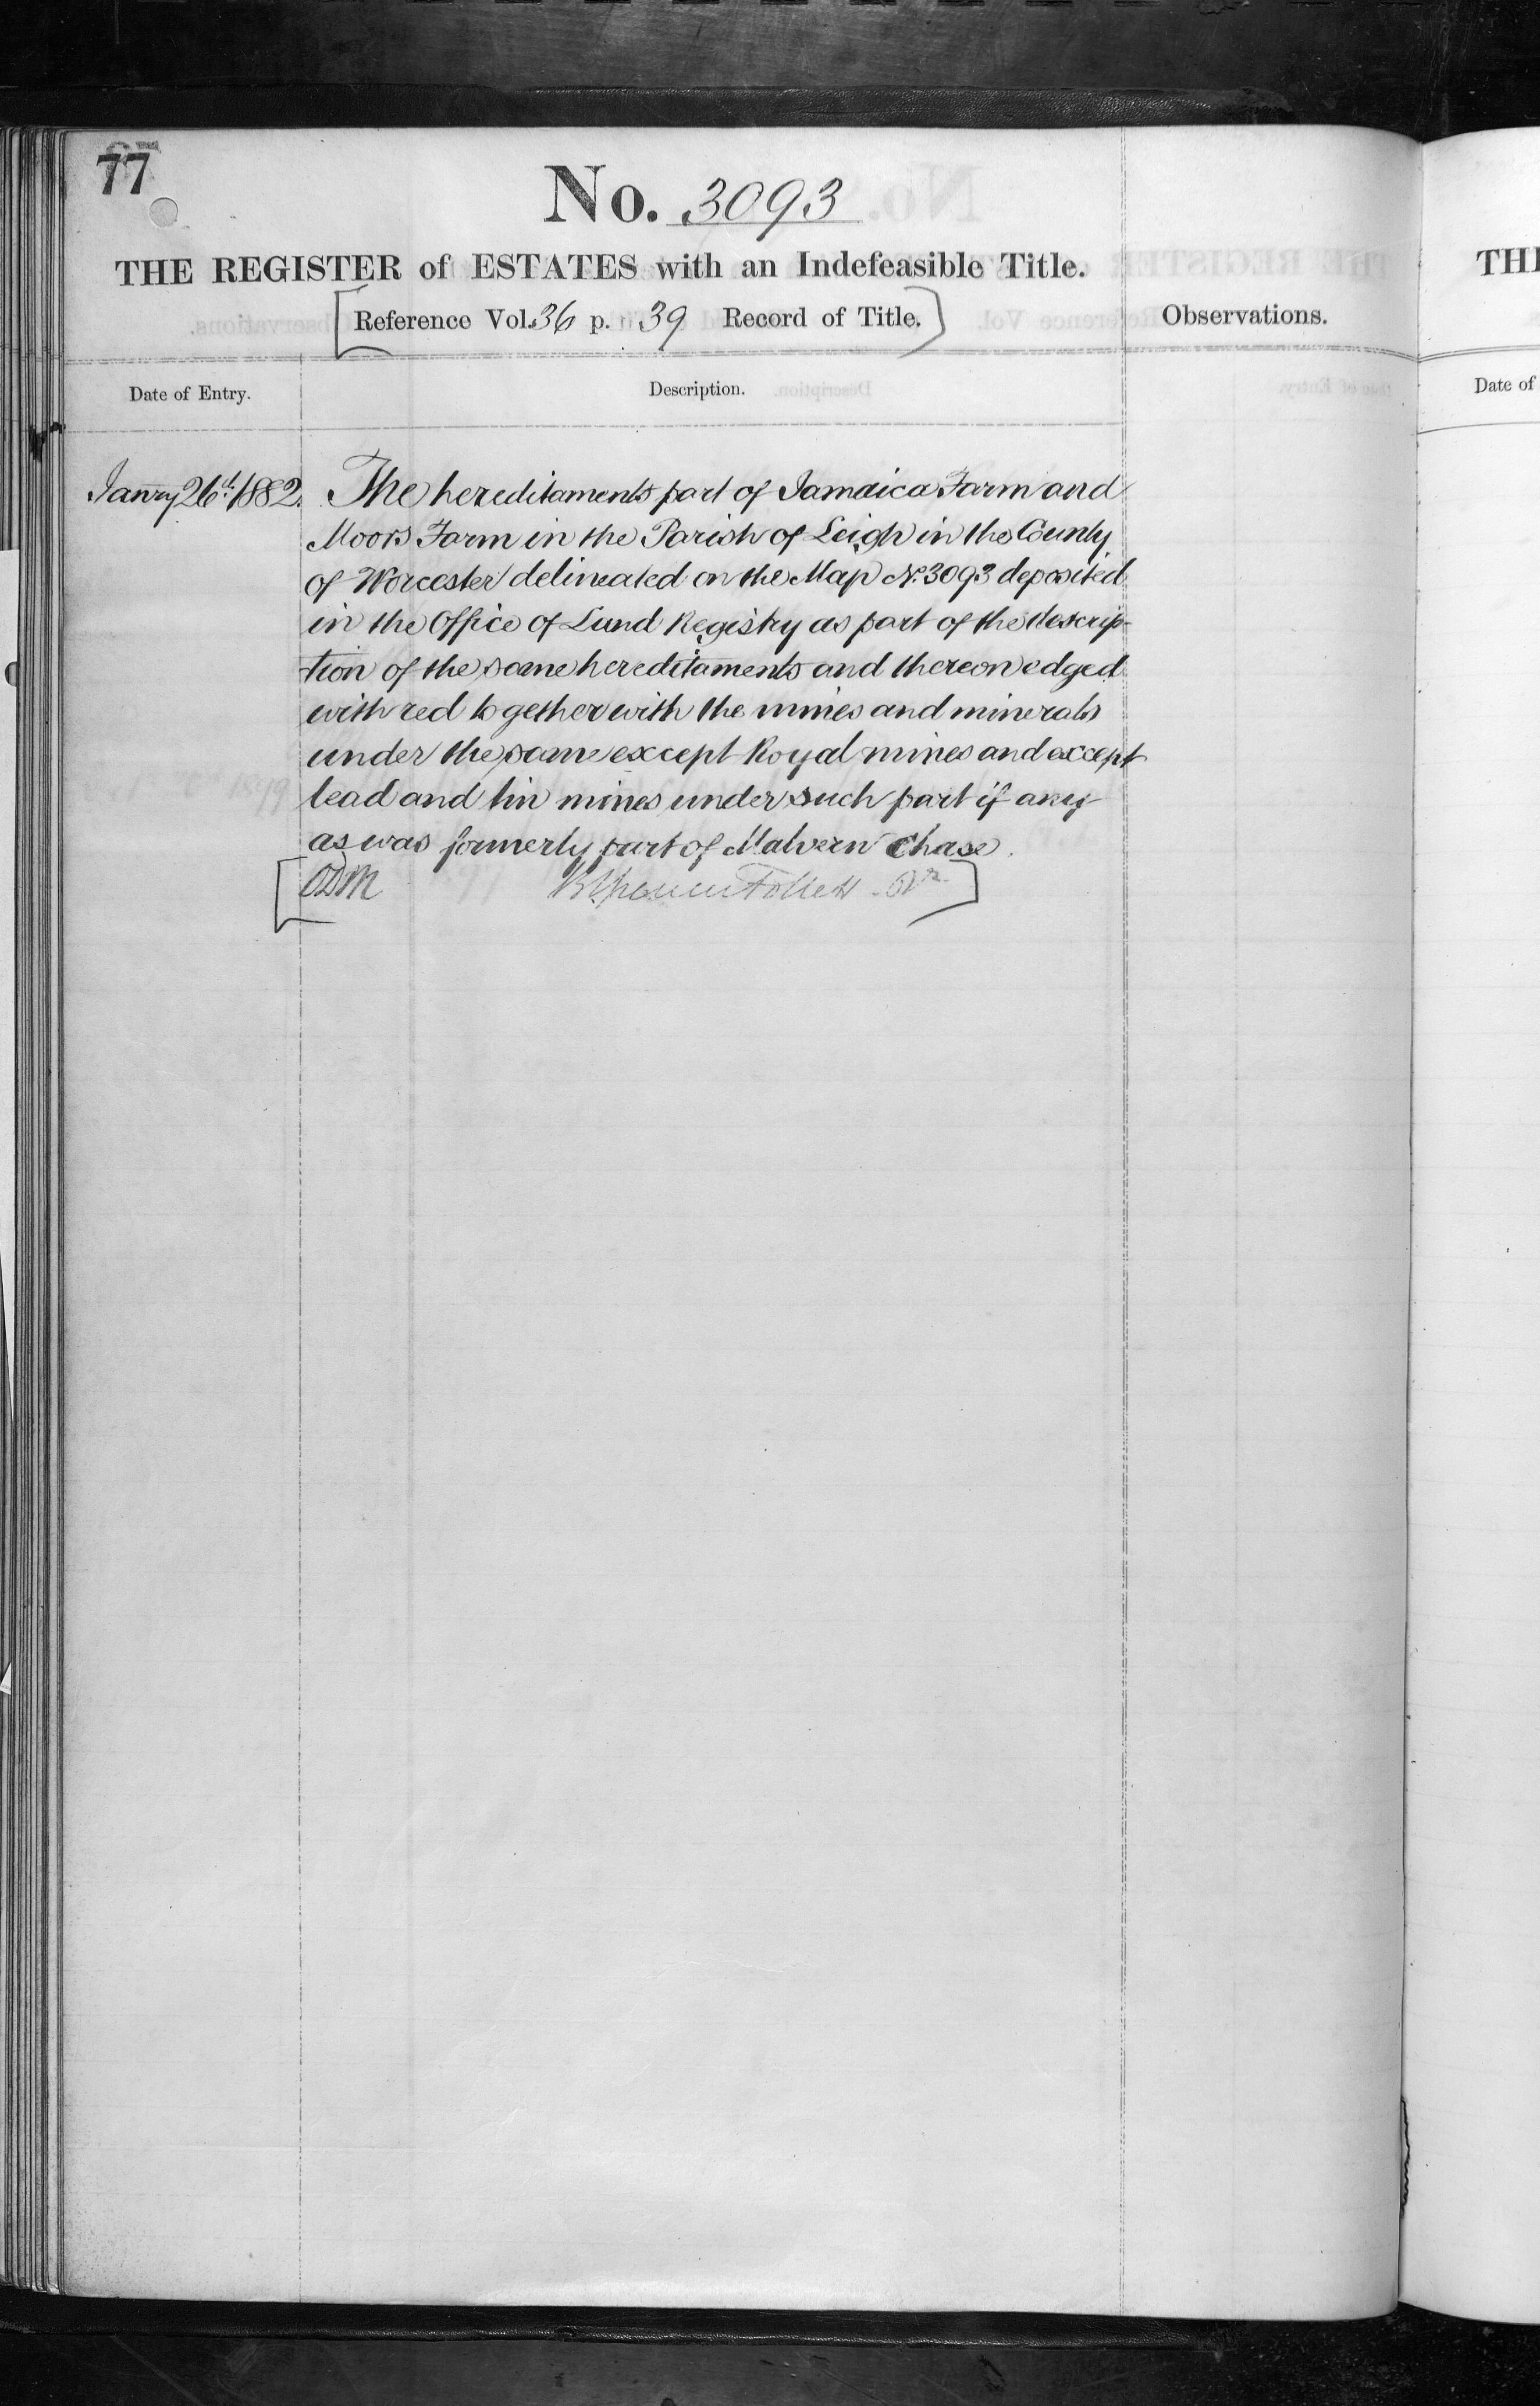 77
No. 3093
THE REGISTER of ESTATES with an Indefeasible Title.
[Reference Vol. 36 p. 39 Record of Title.]
Observations.
Date of Entry.
Description.
Janry 26th 1882.
The hereditaments part of Jamaica Farm and
Moors Farm in the Parish of Leigh in the County
of Worcester delineated on the Map No. 3093 deposited
in the Office of Land Registry as part of the descrip-
tion of the same hereditaments and thereon edged
with red together with the mines and minerals
under the same except Royal mines and except
lead and tin mines under such part if any
as was formerly part of Malvern Chase.
[ODM Follett]
TH
Date of